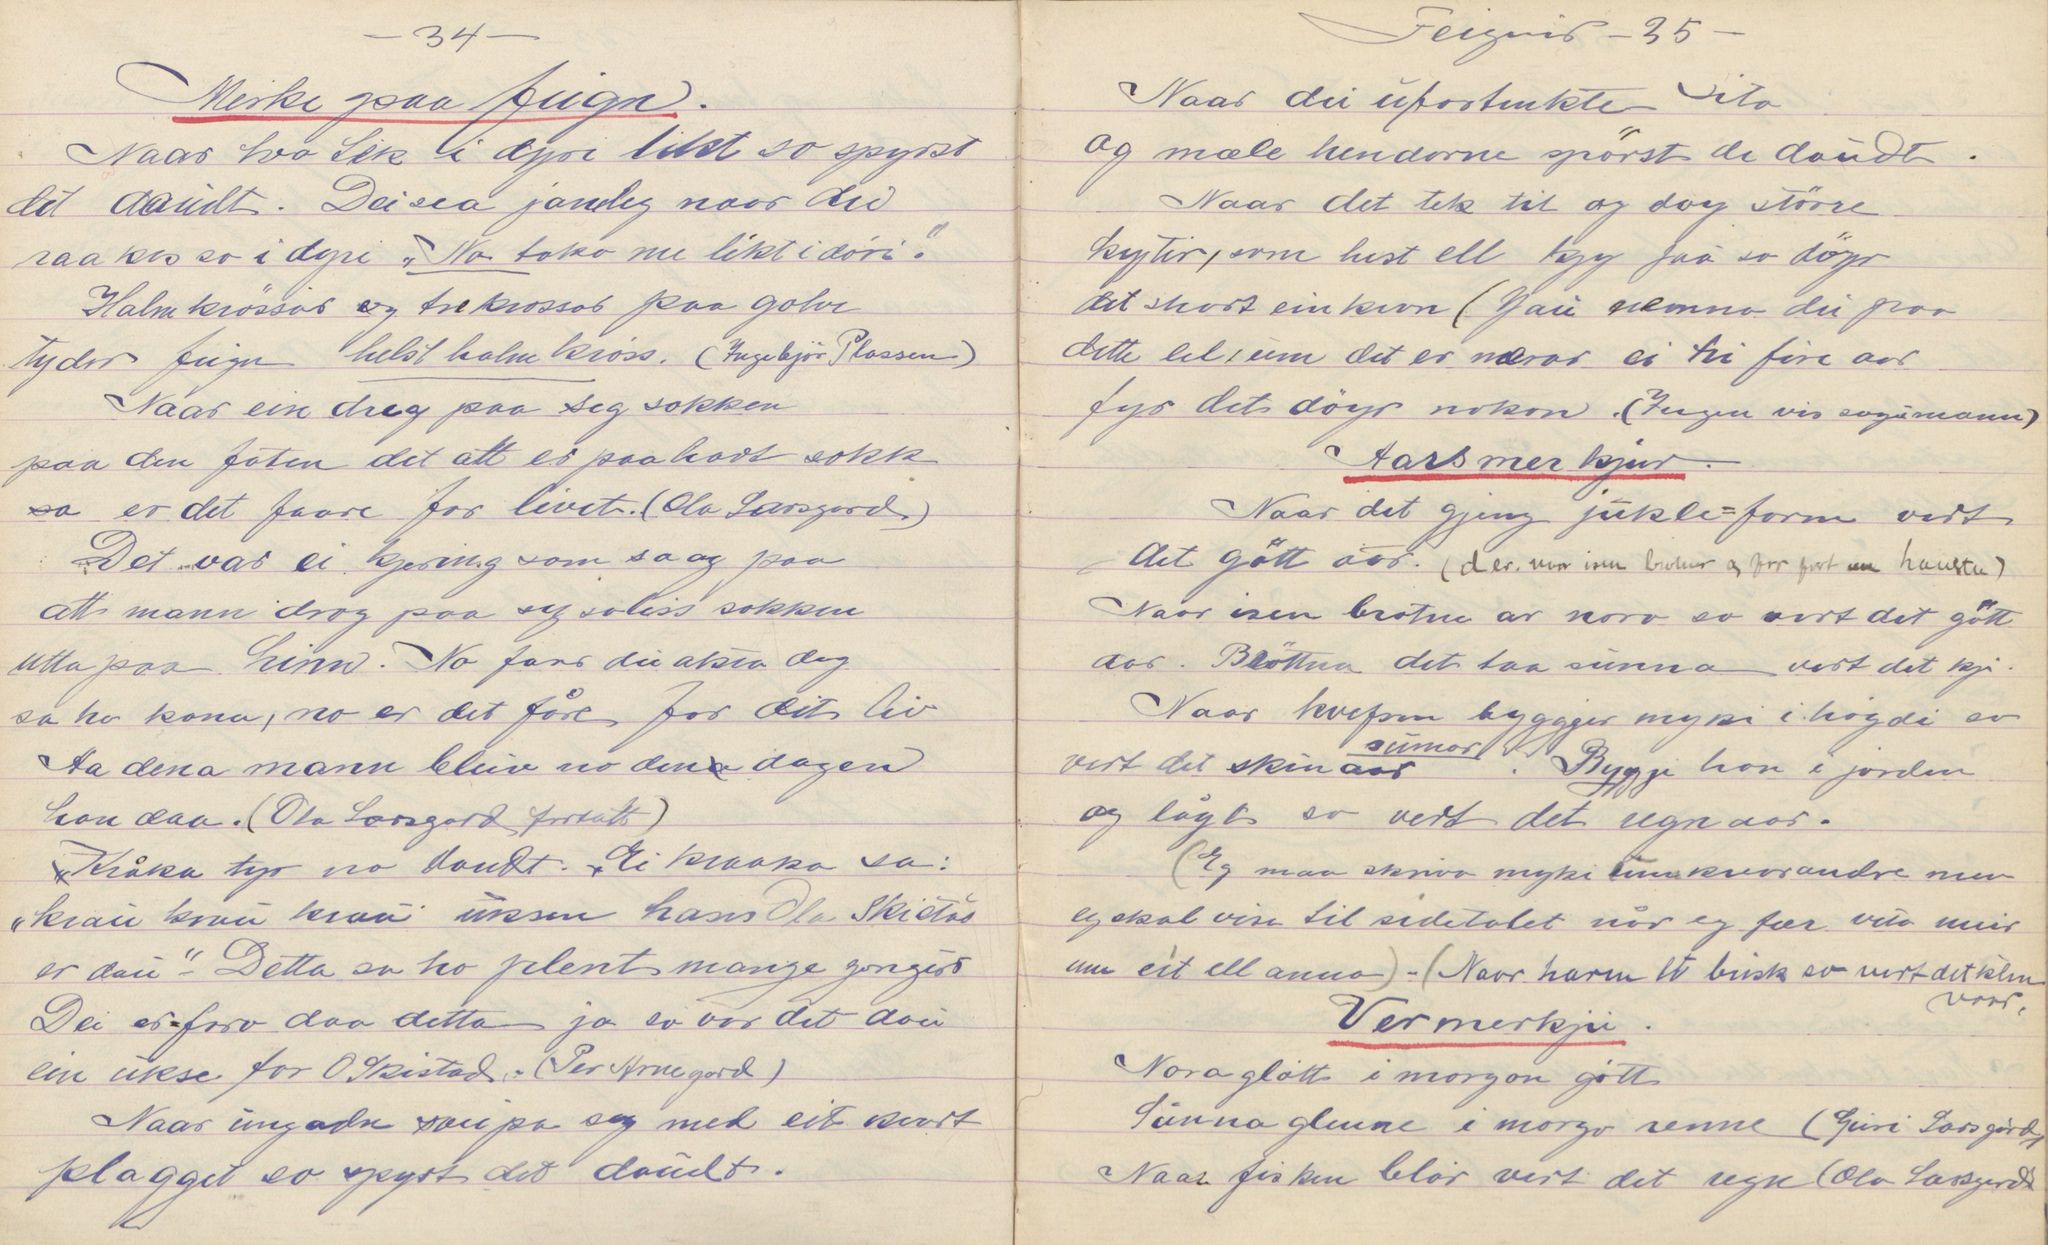 - 34 -
Merke paa feign.
Naar tvo lek i dyri likt so spyrst
det daudt. Dei sea jamleg naar dei
raakes so i dyri "No toko me likt i döri".
Halmkrössar og trekrossar paa golve
tyder feign helst halmkross. (Ingebjör Plassen)
Naar ein dreg paa seg sokken
paa den foten det att er paa hadt sokk
so er det faare for livet. (Ola Larsgard)
Det var ei kjering som saag paa
att mann drog paa seg soleiss sokken
utta paa hinn. No faar du akta deg
sa ho kona, no er det fåre for dit liv
Aa dena mann bleiv no den dagen
han daa. (Ola Larsgard fortalt)
"Kråka tyr no daudt. "Ei kraaka sa:
"krau krau krau uksen hans Ola Skistad
er dau" - Detta sa ho plent mange gonger
Dei er-foro daa detta ja so var det dau
ein ukse for O Skistad. - (Per Arnegard)
Naar ungadn raupa seg med eit kvort
plagget so spyrst det daudt.
Feignir - 35 -
Naar du ufortenkte sita
og mæle hendorne spörst de daudt.
Naar det tek til og döy större
kytir, som hest ell kyr jaa so döyr
det snart ein kvon (Jau nemna du paa
dette lel, um det er nærar ei tri fire aar
fyr det döyr nokon. (Ingen vis sogumann)
Aarsmerkjur.
Naar det gjeng jukle-form vert
det gött aar. (d er. naar isen broknar og for fort um hausten)
Naar isen brotne av nora so vert det gött
aar. Bröttna det taa sunna vert det kji.
Naar kvefsen byggjer myki i högdi so
vert det skinaar sumar. Byggje han i jorden
og lågt so vert det regnaar.
(Eg maa skriva myki um kvorandre men
eg skal visa til sidetalet når eg fær vita meir
um eit ell anna) - (Naar haren busk so vert det klen
vaar.
Vermerkju.
Nora glött i morgon gött
Sunna glenne i morgo renne (Guri Larsgård)
Naar fisken blår vert det regn (Ola Larsgard)